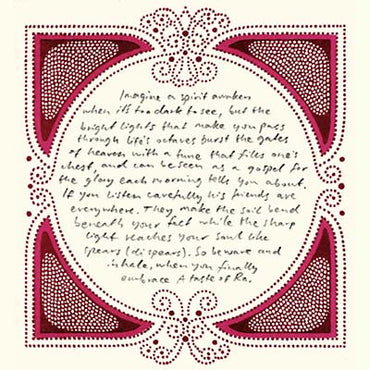 Imagine a spirit awaken
when it's too dark to see, but the
bright lights that make you pass
through life's octaves burst the gates
of heaven with a tune that fills one's
chest, and can be seen as a gospel for
the glory each morning tells you about.
If you listen carefully his friends are
everywhere. They make the soil bend
beneath your feet while the sharp
light reaches your soul like
spears (dispears). So beware and
inhale, when you finally
embrace A taste of Ra.